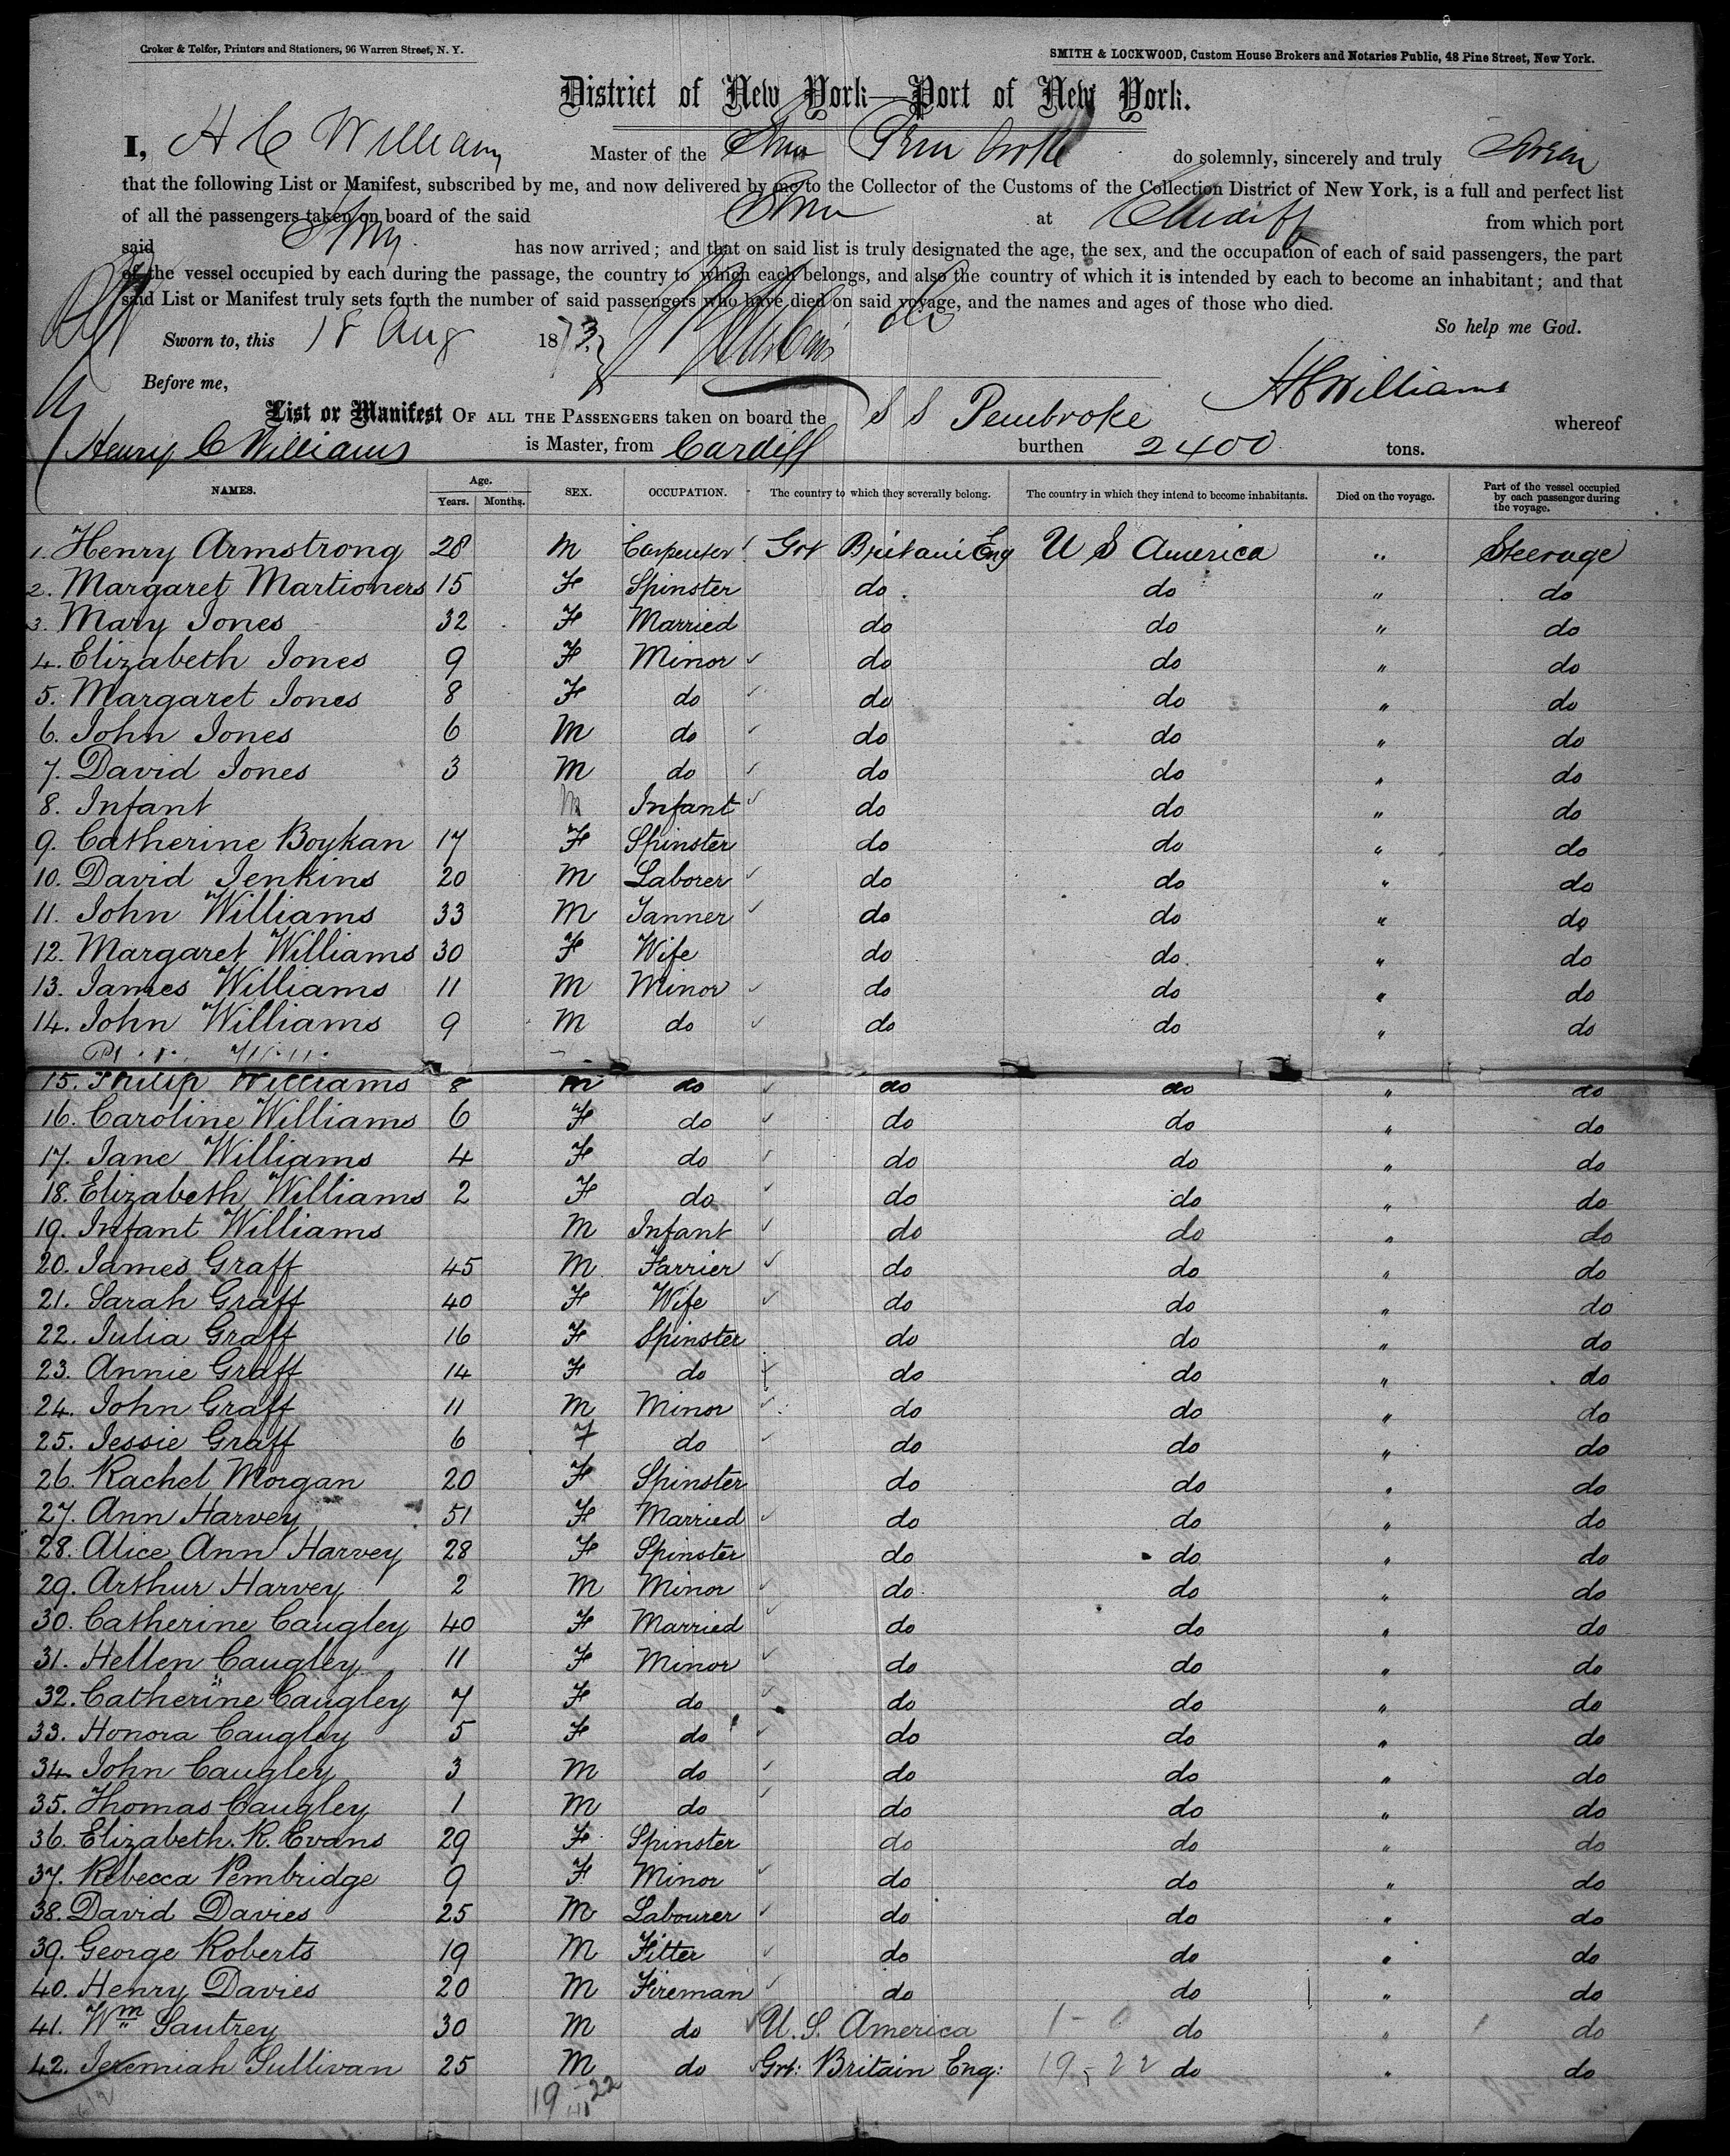 Croker & Telfer, Printers and Stationers, 96 Warren Street, N. Y.
SMITH & LOCKWOOD, Custom House Brokers and Notaries Public, 48 Pine Street, New York.
District of New York—Port of New York.
I, H C William Master of the Stmr Pembroke do solemnly, sincerely and truly swear
that the following List or Manifest, subscribed by me, and now delivered by me to the Collector of the Customs of the Collection District of New York, is a full and perfect list
of all the passengers taken on board of the said Stmr at Cardiff from which port
said Stmr has now arrived; and that on said list is truly designated the age, the sex, and the occupation of each of said passengers, the part
of the vessel occupied by each during the passage, the country to which each belongs, and also the country of which it is intended by each to become an inhabitant; and that
said List or Manifest truly sets forth the number of said passengers who have died on said voyage, and the names and ages of those who died.
So help me God.
Sworn to, this 18 Aug 1873
Before me,
H C Williams
List or Manifest OF ALL THE PASSENGERS taken on board the S S Pembroke whereof
Henry C Williams is Master, from Cardiff burthen 2400 tons.
NAMES. Age. Years. Months. SEX. OCCUPATION. The country to which they severally belong. The country in which they intend to become inhabitants. Died on the voyage. Part of the vessel occupied by each passenger during the voyage.
1. Henry Armstrong 28 M Carpenter Grt Britain Eng U S America " Steerage
2. Margaret Martioners 15 F Spinster do do " do
3. Mary Jones 32 F Married do do " do
4. Elizabeth Jones 9 F Minor do do " do
5. Margaret Jones 8 F do do do " do
6. John Jones 6 M do do do " do
7. David Jones 3 M do do do " do
8. Infant M Infant do do " do
9. Catherine Boykan 17 F Spinster do do " do
10. David Jenkins 20 M Laborer do do " do
11. John Williams 33 M Tanner do do " do
12. Margaret Williams 30 F Wife do do " do
13. James Williams 11 M Minor do do " do
14. John Williams 9 M do do do " do
15. Philip Williams 8 M do do do " do
16. Caroline Williams 6 F do do do " do
17. Jane Williams 4 F do do do " do
18. Elizabeth Williams 2 F do do do " do
19. Infant Williams M Infant do do " do
20. James Graff 45 M Farrier do do " do
21. Sarah Graff 40 F Wife do do " do
22. Julia Graff 16 F Spinster do do " do
23. Annie Graff 14 F do do do " do
24. John Graff 11 M Minor do do " do
25. Jessie Graff 6 F do do do " do
26. Rachel Morgan 20 F Spinster do do " do
27. Ann Harvey 51 F Married do do " do
28. Alice Ann Harvey 28 F Spinster do do " do
29. Arthur Harvey 2 M Minor do do " do
30. Catherine Caugley 40 F Married do do " do
31. Hellen Caugley 11 F Minor do do " do
32. Catherine Caugley 7 F do do do " do
33. Honora Caugley 5 F do do do " do
34. John Caugley 3 M do do do " do
35. Thomas Caugley 1 M do do do " do
36. Elizabeth. R. Evans 29 F Spinster do do " do
37. Rebecca Pembridge 9 F Minor do do " do
38. David Davies 25 M Labourer do do " do
39. George Roberts 19 M Fitter do do " do
40. Henry Davies 20 M Fireman do do " do
41. Wm Sautrey 30 M do U. S. America 1 - 0 do " do
42. Jeremiah Sullivan 25 M do Grt: Britain Eng: 19 - 22 do " do
19 - 22